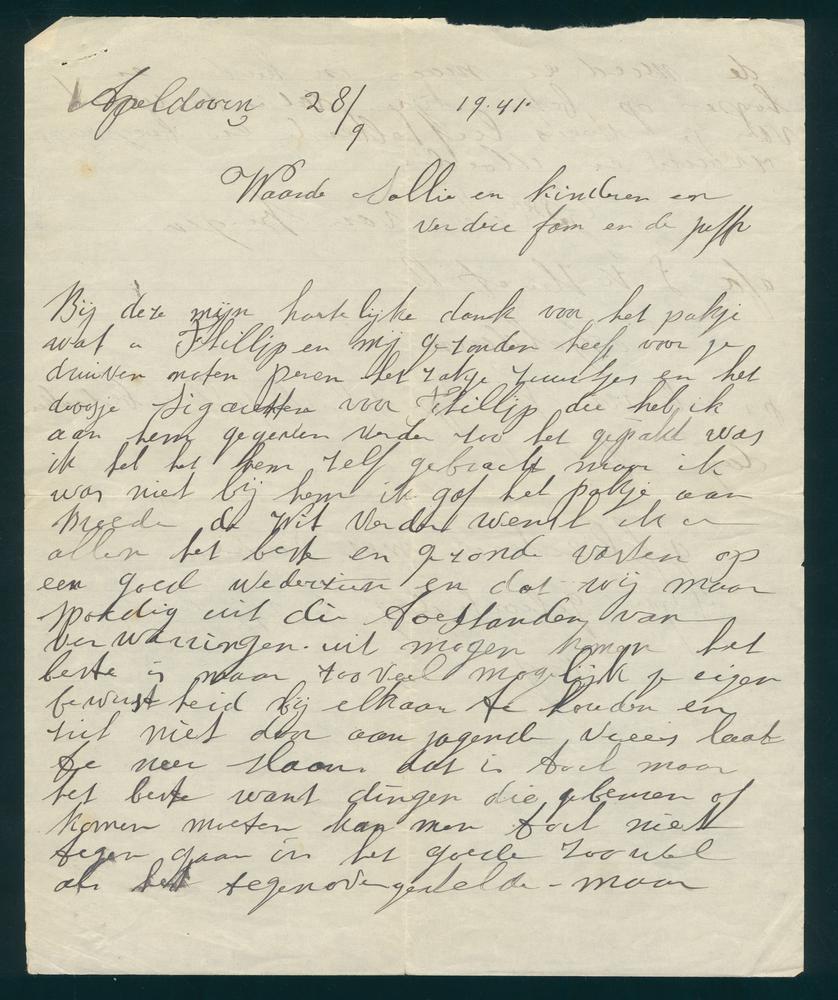 Apeldoorn 28/9 19.41.
Waarde Sallie en kinderen en
verdere fam en de juffr
Bij deze mijn hartelijke dank voor het pakje
wat u Phillip en mij gezonden heef voor je
druiven noten peren het zakje zuurtjes en het
doosje Sigaretten voor Phillip die heb ik
aan hem gegeven verder zoo het gepakt was
ik het het hem zelf gebracht maar ik
was niet bij hem ik gaf het pakje aan
Broeder de Wit Verder wenst ik u
allen het beste en gezonde vasten op
een goed wederzien en dat wij maar
spoedig uit die toestanden van
verwarringen uit mogen komen het
beste is maar zooveel mogelijk je eigen
bewustheid bij elkaar te houden en
zich niet door aan jagende vrees laat
te neer slaan dat is toch maar
het beste want dingen die gebeuren of
komen moeten kan men toch niet
tegen gaan in het goede zoowel
als het tegenovergestelde - maar